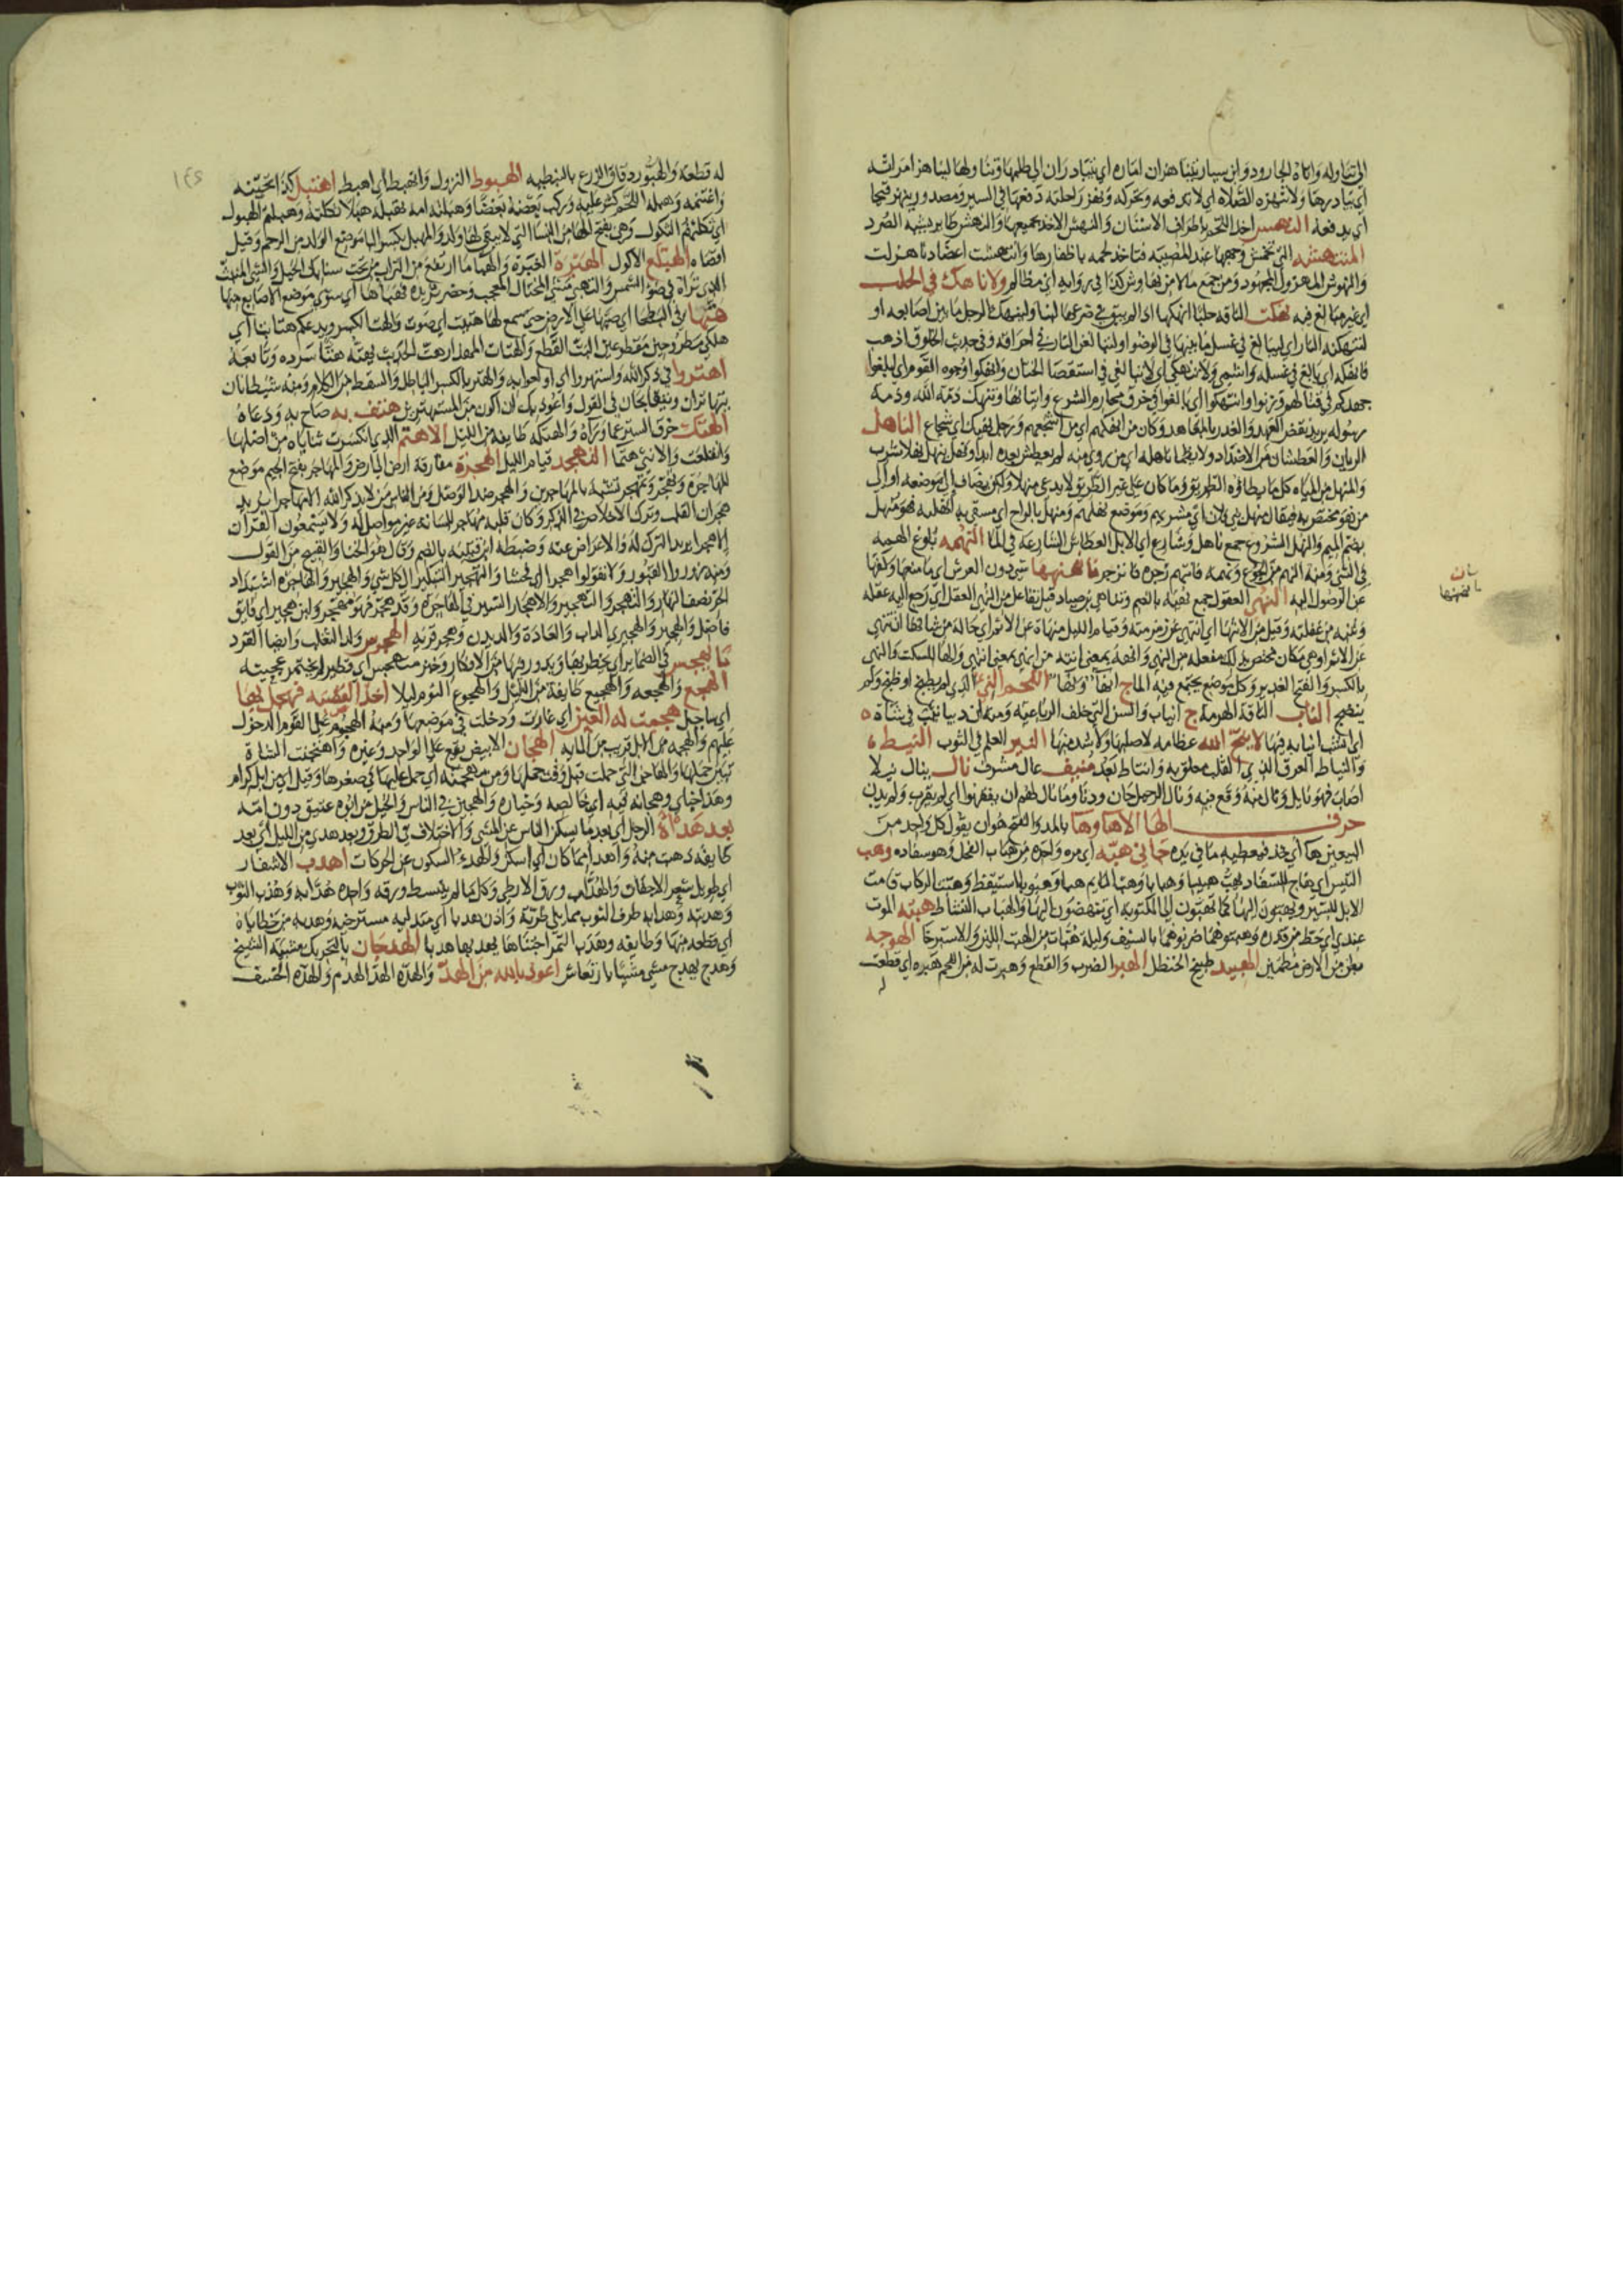 الى تناوله واتاه الجارود وابن سيار يتناهزان اماره اي يتبادران الى طلبها وتناولها ليناهز امراته
اي يبادرها ولا تنهزه الصلاه اي لا تدفعه وتحركه ونهز راحلته دفعها في السير ومصدر وينهز قيحا
اي يدفعه النهس اخذ اللحم باطراف الاسنان والنهش الاخذ بجميعها والنهس طاير يشبه الصرد
المنتهشه التي تخمش وجهها عند المصيبه فتاخذ لحمه باظفارها وانتهشت اعضادنا هزلت
والمنهوش المهزول المجهود ومن جمع مالا من نهاوش كذا في روايه اي مظالم ولا ناهك في الحلب
اي غير مبالغ فيه نهكت الناقه حلبا انهكها اذا لم يبق في ضرعها لبنا ولينهك الرجل ما بين اصابعه او
لتنهكنه النار اي ليبالغ في غسل ما بينها في الوضوء او لتبالغن النار في احراقه وفي حديث الخلوق اذهب
فانهكه اي بالغ في غسله واشمي ولا تنهكي اي لا تبالغي في استقصا الختان وانهكوا وجوه القوم اي ابلغوا
جهدكم في قتالهم وزنوا وانتهكوا اي بالغوا في خرق محارم الشرع واتيانها وتنتهك ذمه الله وذمه
رسوله يريد نقض العهد والغدر بالمعاهد وكان من انهكهم اي من اشجعهم ورجل نهيك اي شجاع الناهل
الريان والعطشان من الاضداد ولا يظما ناهله اي من روي منه لم يعطش بعده ابدا ونهل ينهل نهلا شرب
والمنهل من المياه كل ما يطاؤه الطريق وما كان على غير الطريق لا يدعى منهلا ولكن يضاف الى موضعه او الى
من هو مختص به فيقال منهل بني فلان اي مشربهم وموضع نهلهم ومنهل بالراح اي مسقي به انهلته فهو منهل
بضم الميم والنهل الشروع جمع ناهل وشارع اي الابل العطاش الشارعه في الما النهمه بلوغ الهمه
في الشي ومنه النهم من الجوع ونهمه فانتهم زجره فانزجر فما نهنهها شي دون العرش اي ما منعها وكفها
عن الوصول اليه النهى العقول جمع نهيه بالضم وتناهى ابن صياد قيل تفاعل من النهى العقل اي رجع اليه عقله
وتنبه من غفلته وقيل من الانتها اي انتهى عن زمزمته وقيام الليل منهاه عن الاثم اي حاله من شانها ان تنهى
عن الاثم او هي مكان مختص بذلك مفعله من النهي
بالكسر والفتح الغدير وكل موضع يجتمع فيه الماء
ينضج الناب الناقه الهرمه ج انياب والسن التي خلف الرباعيه ومنه ان ذيبا نيب في شاه
اي انشب انيابه فيها لا نيح الله عظامه لا صلبها ولا شد منها النير العلم في الثوب النيط
والنياط العرق الذي القلب معلق به وانتاط بعد منيف عال مشرف نال ينال نيلا
اصاب فهو نايل ونال منه وقع فيه ونال الرحيل حان ودنا وما نال لهم ان يفقهوا اي لم يقرب ولم يدن
حرف الها الا ها وها بالمد والفتح هو ان يقول كل واحد من
البيعين ها اي خذ فيعطيه ما في يده هبه اي مره واحده من هباب الفحل وهو سفاده وهب
التيس اي هاج للسفاد يهب هبيبا وهبابا وهب النايم هبا وهبوبا استيقظ وهبت الركاب قامت
الابل للسير ويهبون اليها كما يهبون الى المكتوبه اي ينهضون اليها والهباب النشاط هبته الموت
عندي اي حط من قدره وهبتوهما ضربوهما بالسيف وليله هبات من الهبت اللين والاسترخا الهوجه
بطن من الارض مطمين الهبيد طبيخ الحنظل الهبر الضرب والقطع وهبرت له من اللحم هبره اي قطعت
له قطعه والهبور دقاق الزرع بالنبطيه الهبوط النزول والهبط اي اهبط اهتبل
واغتنمه وهبله اللحم كثر عليه وركب بعضه بعضا وهبلته امه تهبله هبلا ثكلته وهبلتهم الهبول
اي ثكلتهم الثكول وهي بفتح الها من النسا التي لا يبقى لها ولد والمهبل بكسر البا موضع الولد من الرحم وقيل
اقصاه الهبلع الاكول الهبوه الغبره والهبا ما ارتفع من التراب من تحت سنابك الخيل والشي المنبث
الذي تراه في ضو الشمس والتهبي مشي المختال المعجب
هتها في البطحا اي صبها على الارض حتى سمع لها هتيت اي صوت والهت الكسر ويدعكم هتا بتا اي
هلكى مطروحين مقطوعين البت القطع والهتات المهذار هت الحديث يهته هتا سرده وتابعه
اهتروا في ذكر الله واستهتروا اي اولعوا به والهتر بالكسر الباطل والسقط من الكلام ومنه شيطانان
يتهاتران اي يتقابحان في القول واعوذ بك ان اكون من المستهترين هتف به صاح به ودعاه
الهتك خرق الستر عما وراه والهتكه طايفه من الليل الاهتم الذي انكسرت ثناياه من اصلها
وانقلعت والانثى هتما التهجد قيام الليل الهجره مفارقه ارض الى ارض والمهاجر بفتح الجيم موضع
المهاجره وتهجر وتمهجر تشبه بالمهاجرين والهجر ضد الوصل ومن الناس من لا يذكر الله الا مهاجرا يريد
هجران القلب وترك الاخلاص في الذكر وكان قلبه مهاجر للسانه غير مواصل له ولا يسمعون القران
الا هجرا يريد الترك له والاعراض عنه وضبطه ابن قتيبه بالضم وقال هو الخنا والقبيح من القول
ومنه زوروا القبور ولا تقولوا هجرا اي فحشا والتهجير التبكير الى كل شي والهجير والهاجره اشتداد
الحر نصف النهار والتهجر والتهجير والاهجار السير في الهاجره وقد هجر فهو مهجر ولبن هجير اي فايق
فاضل والهجير والهجيرى الداب والعاده والديدن وهجر قريه الهجرس ولد الثعلب وايضا القرد
ما يهجس في الضماير اي يخطر بها ويدور فيها من الافكار وخبز متهجس اي فطير لم يختمر عجينه
الهجع والهجعه والهجيع طايفه من الليل والهجوع النوم ليلا اخذ القصبه فهجل بها
اي رمى بها هجمت له العين اي غارت ودخلت في موضعها ومنه الهجوم على القوم الدخول
عليهم والهجمه من الابل قريب من المايه الهجان الابيض يقع على الواحد وغيره واهتجنت الشاه
تبين حملها والهاجن التي حملت قبل وقت حملها
وهذا جناي وهجانه فيه اي خالصه وخياره والهجين في الناس والخيل من ابوه عتيق دون امه
بعد هداه الرجل اي بعد ما يسكن الناس عن المشي والاختلاف في الطرق وبعد هدى من الليل اي بعد
طايفه ذهبت منه واهدا مما كان اي اسكن والهدو السكون عن الحركات اهدب الاشفار
اي طويل شعر الاجفان والهداب ورق الارطى وكل ما لم ينبسط ورقه واحده هدابه وهدب الثوب
وهدبته وهدابه طرف الثوب مما يلي طرته واذن هدبا اي متدليه مسترخيه وهدبه من خطاياه
اي قطعه منها وطايفه وهدب الثمر اجتناها يهدبها هدبا الهدجان بالتحريك مشيه الشيخ
وهدج يهدج مشى مشيا بارتعاش اعوذ بالله من الهد والهده الهد الهدم والهده الخسف